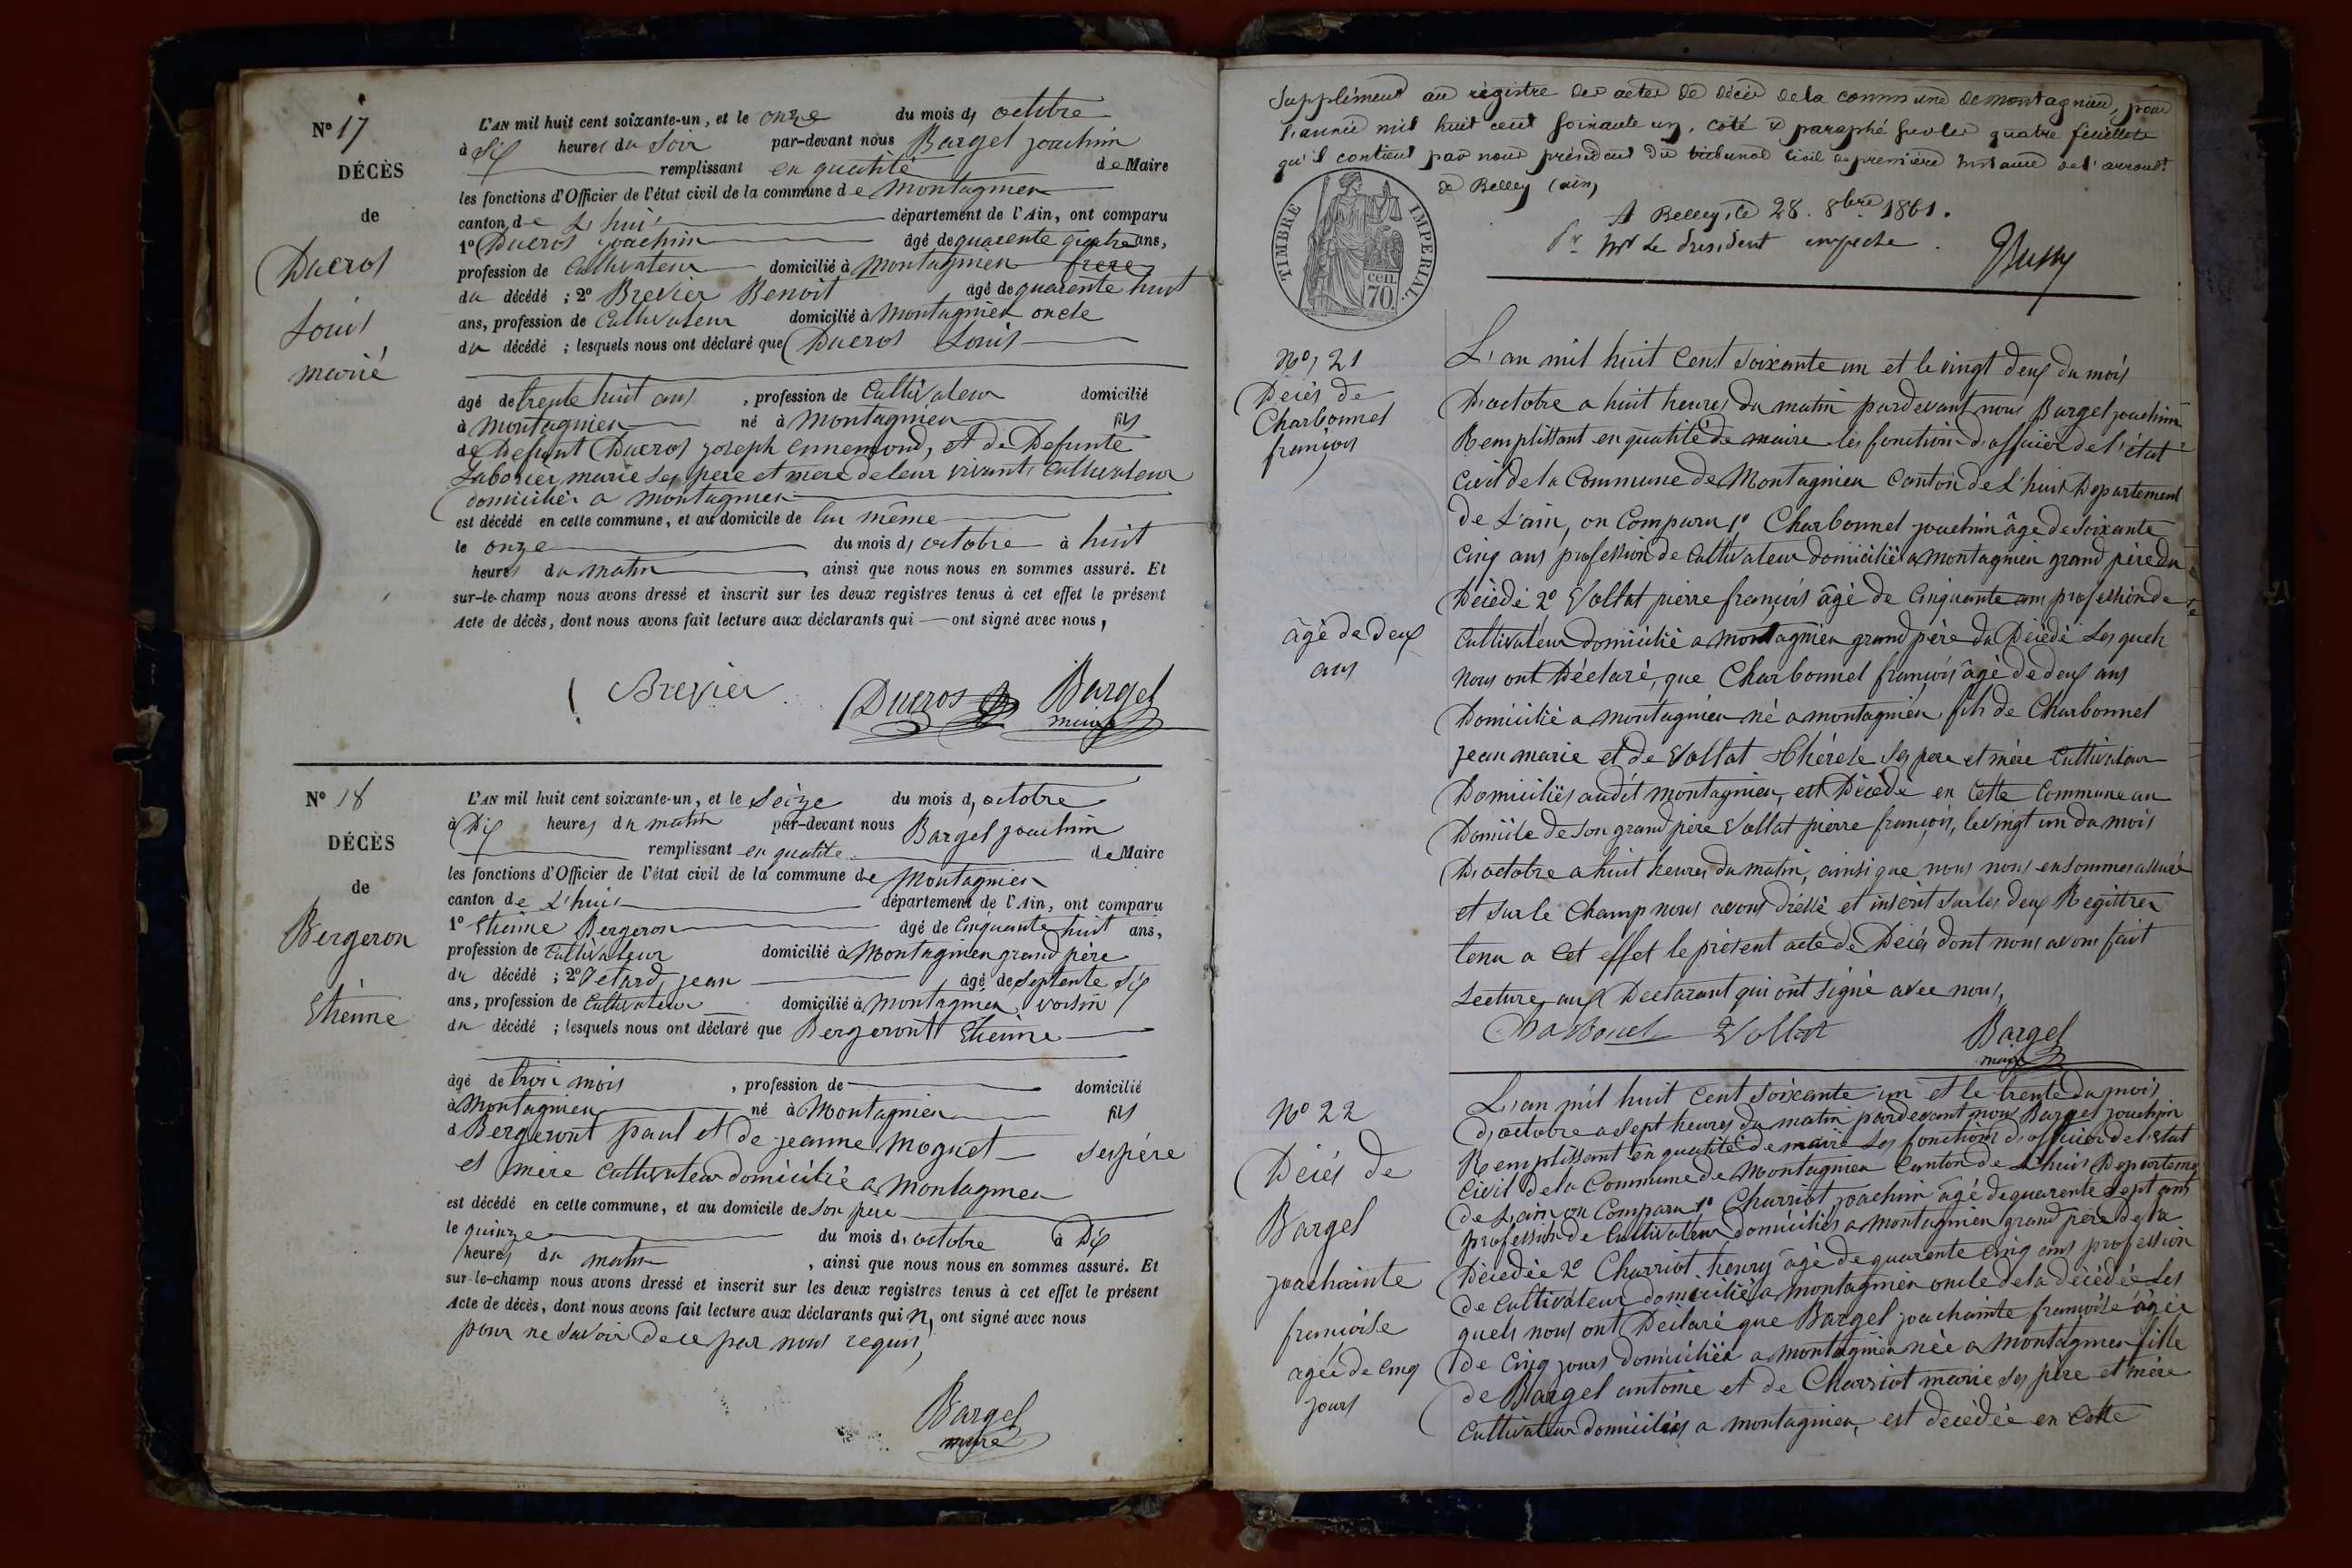 N° 17
DÉCÈS
de
Ducros
Louis
marié
L'AN mil huit cent soixante-un, et le onze du mois d, octobre
à Six heures du Soir par-devant nous Bargel joachim
remplissant en qualité de Maire
les fonctions d'Officier de l'état civil de la commune de Montagnieu
canton de L'huis département de l'Ain, ont comparu
1° Ducros joachim âgé de quarente quatre ans,
profession de Cultivateur domicilié à Montagnieu frere
du décédé ; 2° Brevier Benoit âgé de quarente huit
ans, profession de Cultivateur domicilié à Montagnieu oncle
du décédé ; lesquels nous ont déclaré que Ducros Louis
âgé de trente huit ans , profession de Cultivateur domicilié
à Montagnieu né à Montagnieu fils
de Defunt Ducros joseph ennemond, et de Defunte
marie ses pere et mere de leur vivant Cultivateur
domiciliés a montagnieu
est décédé en cette commune, et au domicile de lui même
le onze du mois d, octobre à huit
heures du matin , ainsi que nous nous en sommes assuré. Et
sur-le-champ nous avons dressé et inscrit sur les deux registres tenus à cet effet le présent
Acte de décès, dont nous avons fait lecture aux déclarants qui ont signé avec nous,
Brevier Ducros Bargel
maire
N° 18
DÉCÈS
de
Bergeron
Etienne
L'AN mil huit cent soixante-un, et le Seize du mois d, octobre
à Dix heures du matin par-devant nous Bargel joachim
remplissant en qualite de Maire
les fonctions d'Officier de l'état civil de la commune de Montagnieu
canton de L'huis département de l'Ain, ont comparu
1° Etienne Bergeron âgé de Cinquante huit ans,
profession de Cultivateur domicilié à Montagnieu grand père
du décédé ; 2° Vetard jean âgé de septente Six
ans, profession de Cultivateur domicilié à Montagnieu voisin
du décédé ; lesquels nous ont déclaré que Bergeront Etienne
âgé de trois mois , profession de domicilié
à Montagnieu né à Montagnieu fils
d Bergeront paul et de jeanne Moguet ses père
et mère cultivateur domicilié a Montagnieu
est décédé en cette commune, et au domicile de son pere
le quinze du mois d, octobre à Dix
heures du matin , ainsi que nous nous en sommes assuré. Et
sur-le-champ nous avons dressé et inscrit sur les deux registres tenus à cet effet le présent
Acte de décès, dont nous avons fait lecture aux déclarants qui n, ont signé avec nous
pour ne savoir de ce par nous requis,
Bargel
maire
Supplément au régistre des actes de décès de la commune de montagnieu, pour
l'année mil huit cent soixante un, coté & paraphé sur les quatre feuillets
qu'il contient par nous président du tribunal Civil de première instance de l'arrondt
de Belley (ain)
A Belley, le 28. 8bre 1861.
Pr Mr Le President empeche.
TIMBRE IMPERIAL.
70 cen.
N°, 21
Décès de
Charbonnel
françois
âgé de deux
ans
L'an mil huit Cent soixante un et le vingt deux du mois
D'octobre a huit heures du matin pardevant nous Bargel joachim
Remplissant en qualité de maire les fonction d'officier de l'état
Civil de la Commune de Montagnieu Canton de L'huis Departement
de L'ain, on Comparu 1° Charbonnel joachim âgé de soixante
Cinq ans profession de Cultivateur domicilié a montagnieu grand père du
Décédé 2° Vallat pierre françois âgé de Cinquante ans profession de
Cultivateur domicilié a montagnieu grand père du Décédé Les quels
nous ont Déclaré, que Charbonnel françois âgé de deux ans
Domicilié a montagnieu né a montagnieu, fils de Charbonnel
jean marie et de Vallat Thérèse Ses pere et mère Cultivateur
Domiciliés audit montagnieu, est Décédé en Cette Commune au
Domicile de son grand père Vallat pierre françois, le vingt un du mois
D'octobre a huit heures du matin, ainsi que nous nous en sommes assuré
et sur le Champ nous avons dressé et inscrit sur les deux Registres
tenu a Cet effet le présent acte de Décès dont nous avons fait
Lecture aux Declarant qui ont signé avec nous,
Charbonel Vallat Bargel
maire
N° 22
Décés de
Bargel
joachainte
françoise
agée de Cinq
jours
L'an mil huit Cent soixante un et le trente du mois
d'octobre a sept heures du matin pardevant nous Bargel joachim
Remplissant en qualité de maire Les fonctions d'officier de l'état
Civil de la Commune de Montagnieu Canton de L'huis Departeme
de L'ain on Comparu 1° Charriot joachim âgé de quarente sept ans
profession de Cultivateur domiciliés a montagnieu grand père de la
Décédée 2° Charriot henry âgé de quarente Cinq ans profession
de Cultivateur domicilié a montagnieu oncle de la décédée Les
quels nous ont Déclaré que Bargel joachainte françoise âgée
de Cinq jours domiciliée a montagnieu née a montagnieu fille
de Bargel antoine et de Charriot marie ses père et mère
Cultivateur domiciliés a montagnieu, est décédée en Cette